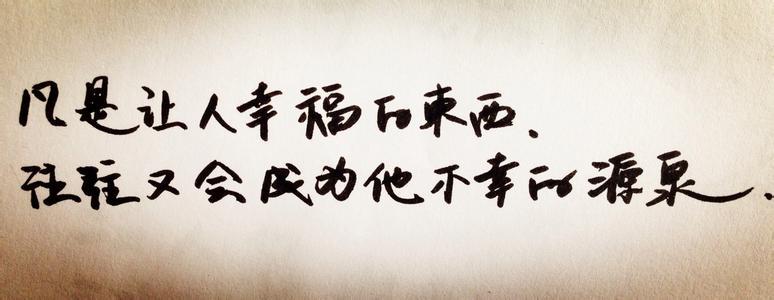 凡是让人幸福的東西、
往往又会成为他不幸的源泉.